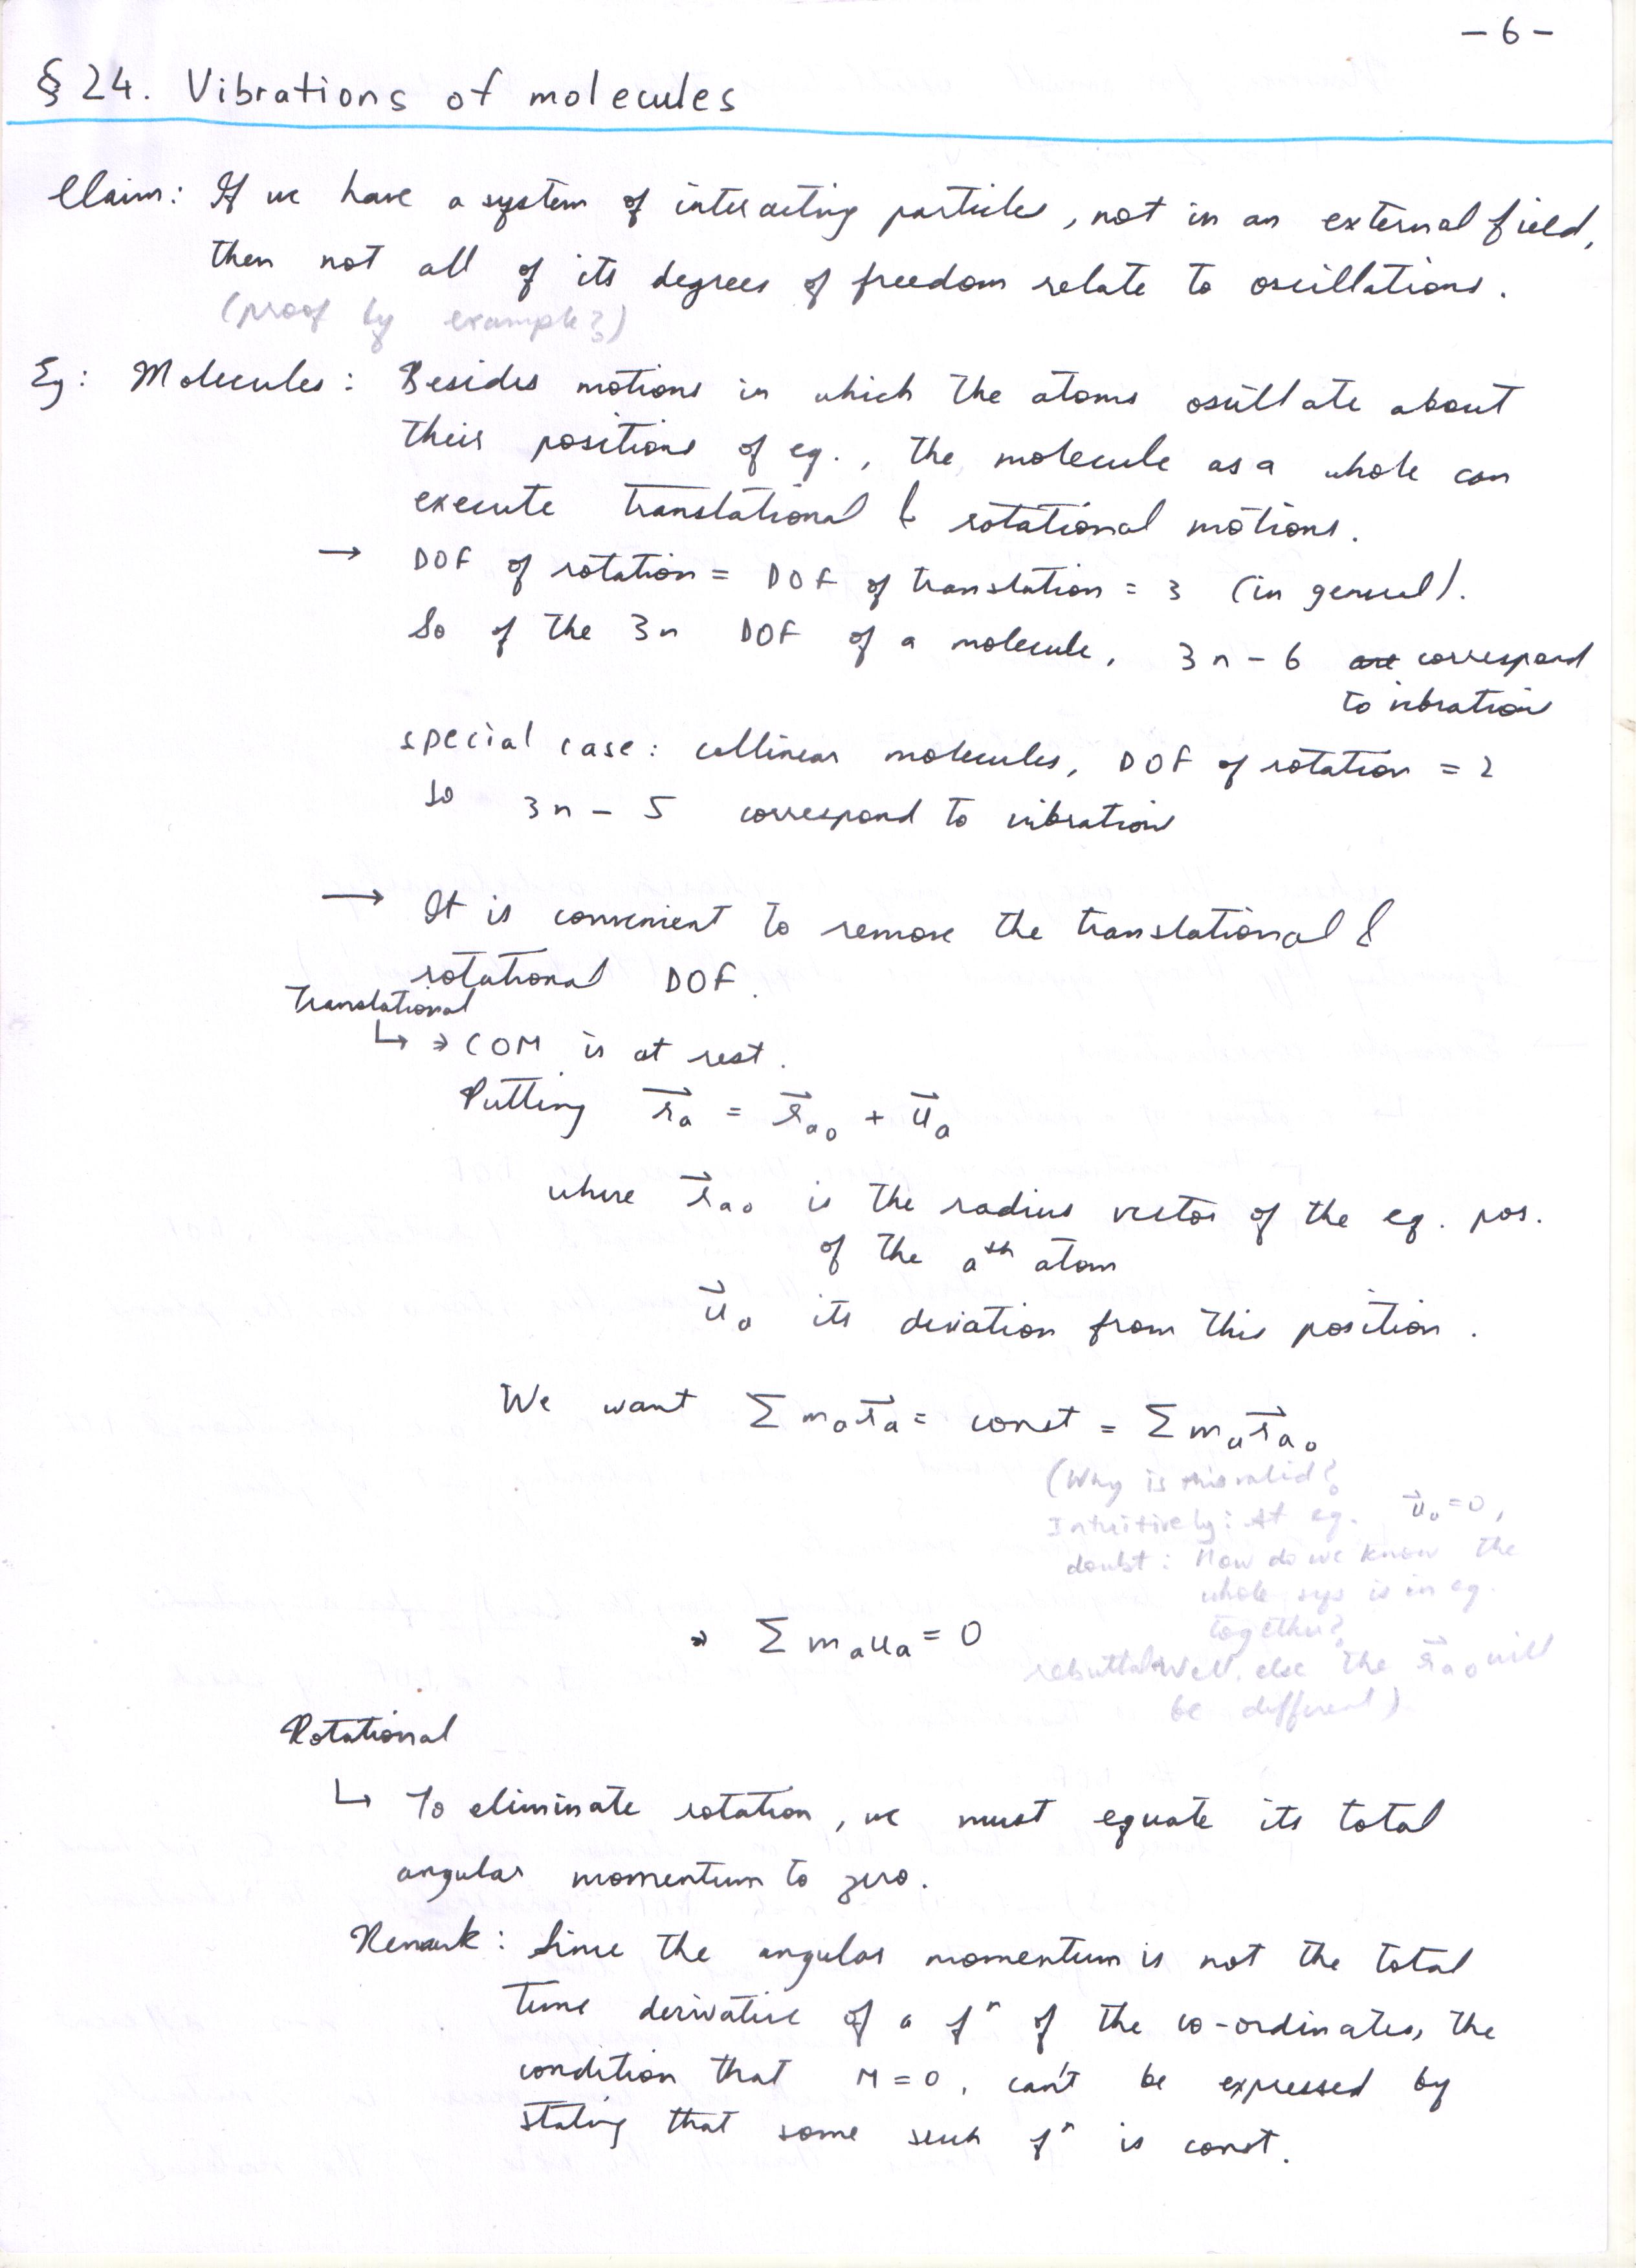 – 6 –
§ 24. Vibrations of molecules
Claim: If we have a system of interacting particles, not in an external field,
then not all of its degrees of freedom relate to oscillations.
(proof by example?)
Eg: Molecules: Besides motions in which the atoms oscillate about
their positions of eq., the molecule as a whole can
execute translational & rotational motions.
→ DOF of rotation = DOF of translation = 3 (in general).
So of the 3n DOF of a molecule, 3n – 6 are correspond
to vibration
special case: collinear molecules, DOF of rotation = 2
so 3n – 5 correspond to vibration
→ It is convenient to remove the translational &
rotational DOF.
Translational
↳ ⇒ COM is at rest.
Putting r⃗ₐ = r⃗ₐ₀ + u⃗ₐ
where r⃗ₐ₀ is the radius vector of the eq. pos.
of the aᵗʰ atom
u⃗ₐ its deviation from this position.
We want Σ mₐr⃗ₐ = const = Σ mₐr⃗ₐ₀
(Why is this valid?
Intuitively: At eq. u⃗ₐ = 0,
doubt: How do we know the
whole sys is in eq.
together?
rebuttal: Well, else the r⃗ₐ₀ will
be different)
⇒ Σ mₐuₐ = 0
Rotational
↳ To eliminate rotation, we must equate its total
angular momentum to zero.
Remark: Since the angular momentum is not the total
time derivative of a fⁿ of the co-ordinates, the
condition that M = 0, can't be expressed by
stating that some such fⁿ is const.